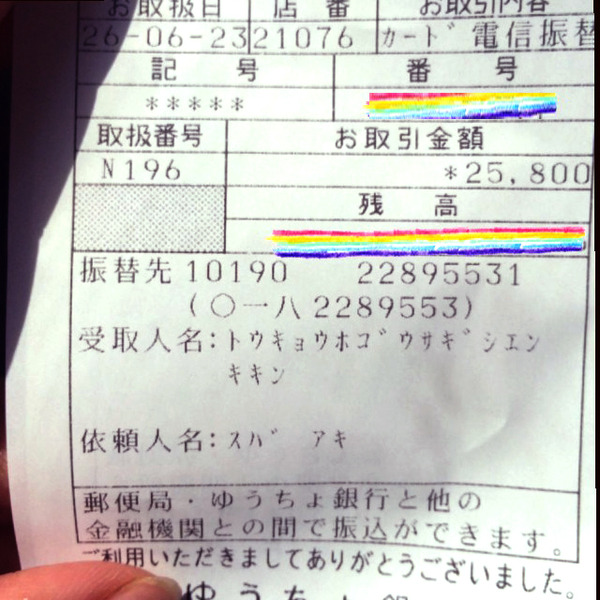 お取扱日 店番 お取引内容
26-06-23 21076 カード 電信振替
記号 番号
*****
取扱番号 お取引金額
N196 *25,800
残高
振替先 10190 22895531
(〇一八 2289553)
受取人名:トウキョウホゴウサギシエン
キキン
依頼人名:スバ アキ
郵便局・ゆうちょ銀行と他の
金融機関との間で振込ができます。
ご利用いただきましてありがとうございました。
ゆうち